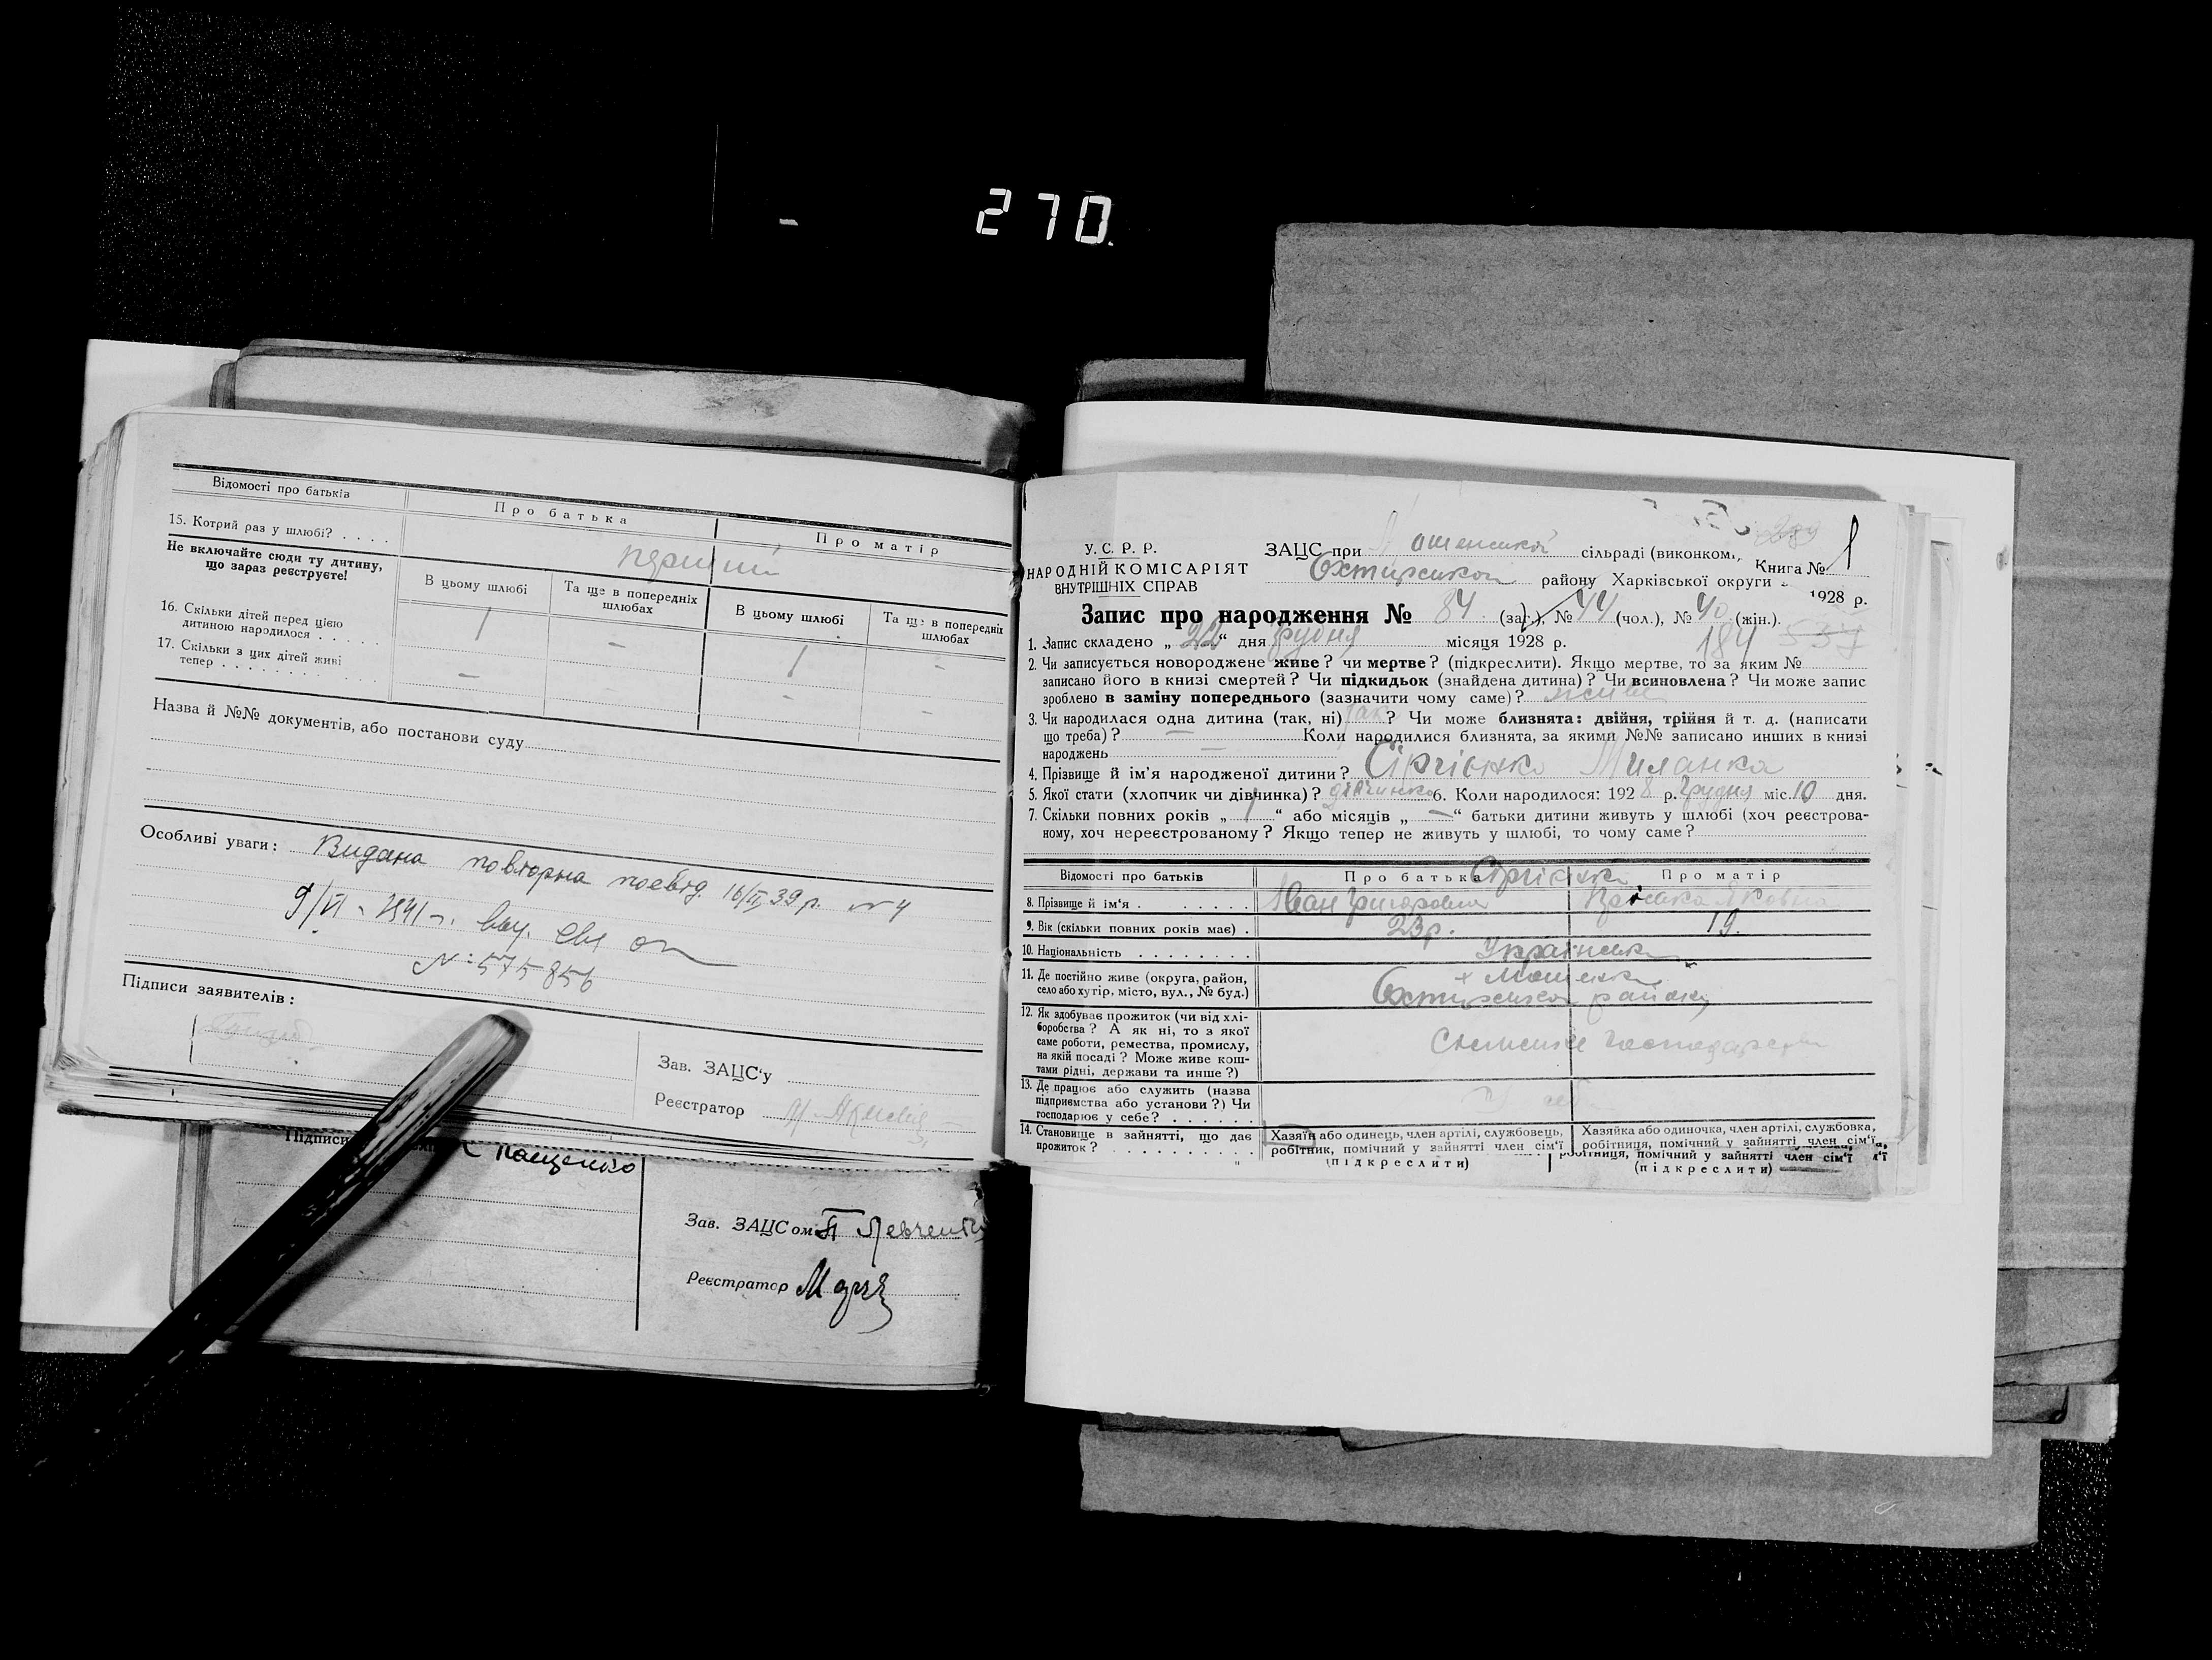 270.
Відомості про батьків
Про батька
Про матір
15. Котрий раз у шлюбі? . . . .
перший
Не включайте сюди ту дитину,
що зараз реєструєте!
В цьому шлюбі
Та ще в попередніх
шлюбах
В цьому шлюбі
Та ще в попередніх
шлюбах
16. Скільки дітей перед цією
дитиною народилося . . . . .
1 —
17. Скільки з цих дітей живі
тепер . . . . . . . . . .
— 1 —
Назва й №№ документів, або постанови суду
Особливі уваги: Видана повторна посвід. 16/II 39 р. № 4
9/VI - 1941 р.
№ 575856
Підписи заявителів:
Зав. ЗАЦС'у
Реєстратор
Підписи
Пащенко
Зав. ЗАЦСом П Левченко
Реєстратор
У. С. Р. Р.
НАРОДНІЙ КОМІСАРІЯТ
ВНУТРІШНІХ СПРАВ
ЗАЦС при сільраді (виконком.,
Охтирського району Харківської округи
Книга № 1
1928 р.
Запис про народження № 84 (заг.), № 44 (чол.), № 40 (жін.).
184 537
1. Запис складено „22“ дня грудня місяця 1928 р.
2. Чи записується новороджене живе? чи мертве? (підкреслити). Якщо мертве, то за яким №
записано його в книзі смертей? Чи підкидьок (знайдена дитина)? Чи всиновлена? Чи може запис
зроблено в заміну попереднього (зазначити чому саме)? живе
3. Чи народилася одна дитина (так, ні) так? Чи може близнята: двійня, трійня й т. д. (написати
що треба)? — Коли народилися близнята, за якими №№ записано инших в книзі
народжень —
4. Прізвище й ім'я народженої дитини? Сіргієнко Миланка
5. Якої стати (хлопчик чи дівчинка)? дівчинка 6. Коли народилося: 1928 р. грудня міс. 10 дня.
7. Скільки повних років „1“ або місяців „—“ батьки дитини живуть у шлюбі (хоч реєстрова-
ному, хоч нереєстрованому? Якщо тепер не живуть у шлюбі, то чому саме?
Відомості про батьків
Про батька
Сіргієнки
Про матір
8. Прізвище й ім'я . . . . . .
Іван Григорович
Яковна
9. Вік (скільки повних років має) .
23 р.
19.
10. Національність . . . . . . . .
Українська
11. Де постійно живе (округа, район,
село або хутір, місто, вул., № буд.)
х Мошенки
Охтирського району
12. Як здобуває прожиток (чи від хлі-
боробства? А як ні, то з якої
саме роботи, ремества, промислу,
на якій посаді? Може живе кош-
тами рідні, держави та инше?)
Сільське господарство
13. Де працює або служить (назва
підприємства або установи?) Чи
господарює у себе? . . . . . .
14. Становище в зайнятті, що дає
прожиток? . . . . . . . . . .
Хазяїн або одинець, член артілі, службовець,
робітник, помічний у зайнятті член сім'ї
(підкреслити)
Хазяйка або одиночка, член артілі, службовка,
робітниця, помічний у зайнятті член сім'ї
(підкреслити)